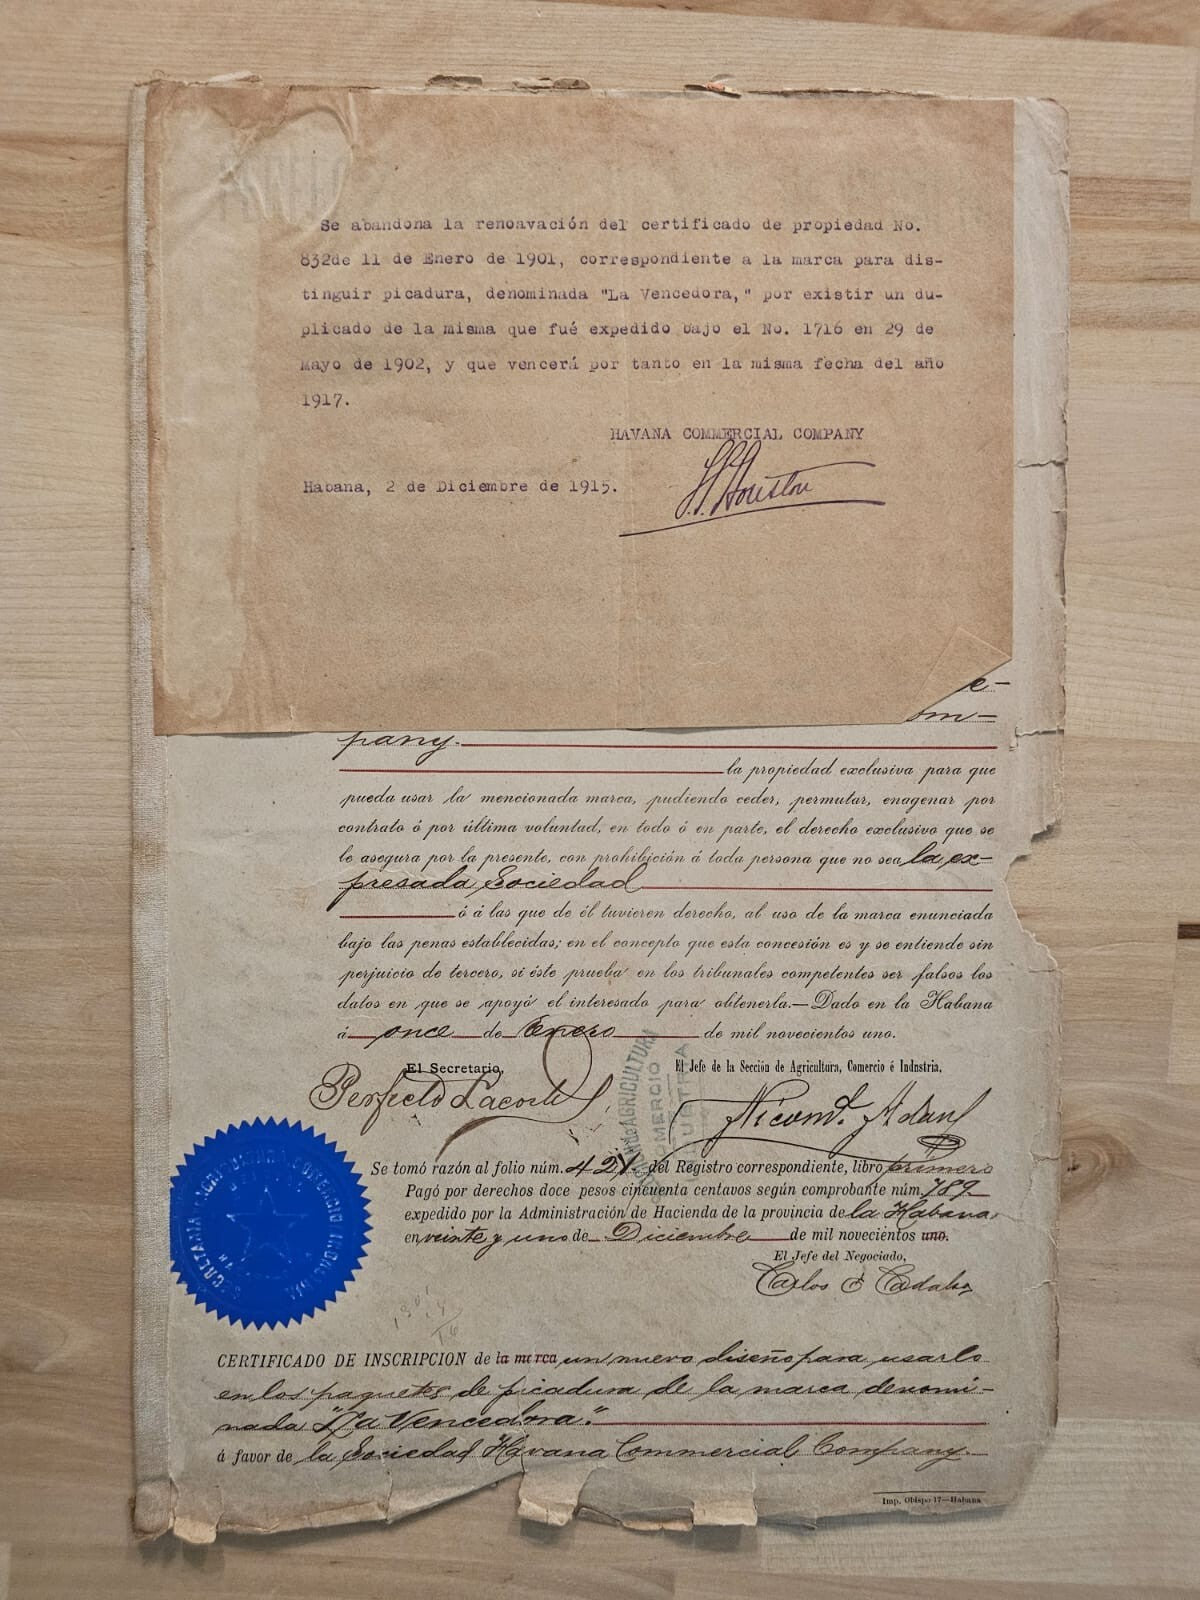 Se abandona la renoavación del certificado de propiedad No.
832de 11 de Enero de 1901, correspondiente a la marca para dis-
tinguir picadura, denominada "La Vencedora," por existir un du-
plicado de la misma que fué expedido bajo el No. 1716 en 29 de
Mayo de 1902, y que vencerá por tanto en la misma fecha del año
1917.
HAVANA COMMERCIAL COMPANY
Habana, 2 de Diciembre de 1915.
Houston
e-
om-
pany.
la propiedad exclusiva para que
pueda usar la mencionada marca, pudiendo ceder, permutar, enagenar por
contrato ó por última voluntad, en todo ó en parte, el derecho exclusivo que se
le asegura por la presente, con prohibición á toda persona que no sea la ex-
presada Sociedad
ó á las que de él tuvieren derecho, al uso de la marca enunciada
bajo las penas establecidas; en el concepto que esta concesión es y se entiende sin
perjuicio de tercero, si éste prueba en los tribunales competentes ser falsos los
datos en que se apoyó el interesado para obtenerla.—Dado en la Habana
á once de Enero de mil novecientos uno.
El Secretario, El Jefe de la Sección de Agricultura, Comercio é Industria,
Perfecto Lacoste
AGRICULTURA
COMERCIO
INDUSTRIA
Se tomó razón al folio núm. 421 del Registro correspondiente, libro primero
Pagó por derechos doce pesos cincuenta centavos según comprobante núm. 789
expedido por la Administración de Hacienda de la provincia de la Habana,
en veinte y uno de Diciembre de mil novecientos uno.
El Jefe del Negociado,
Carlos
CERTIFICADO DE INSCRIPCION de la marca un nuevo diseño para usarlo
en los paquetes de picadura de la marca denomi-
nada "La Vencedora".
á favor de la Sociedad Havana Commercial Company.
Imp. Obispo 17—Habana